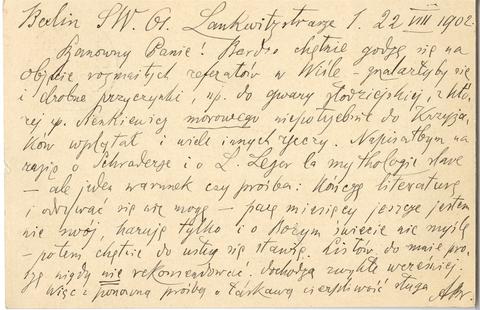 Berlin SW. 61. Lankwitzstrasse 1. 22 VIII 1902.
Szanowny Panie! Bardzo chętnie godzę się na
objęcie rozmaitych referatów w Wiśle – znalazłyby się
i drobne przyczynki, np. do gwary złodziejskiej, z któ-
rej p. Sienkiewicz morowego niepotrzebnie do Krzyża-
ków wplątał i wiele innych rzeczy. Napisałbym na
razie o Schraderze i o L. Leger la mythologie slave
– ale jeden warunek czy prośba: Kończę literaturę
i odrywać się nie mogę – parę miesięcy jeszcze jestem
nie swój, haruję tylko i o Bożym świecie nie myślę
– potem chętnie do usług się stawię. Listów do mnie pro-
szę nigdy nie rekomendować. dochodzą zwykle wcześniej.
Więc z ponowną prośbą o łaskawą cierpliwość sługa ABr.